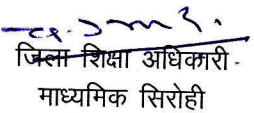 जिला शिक्षा अधिकारी
माध्यमिक सिरोही